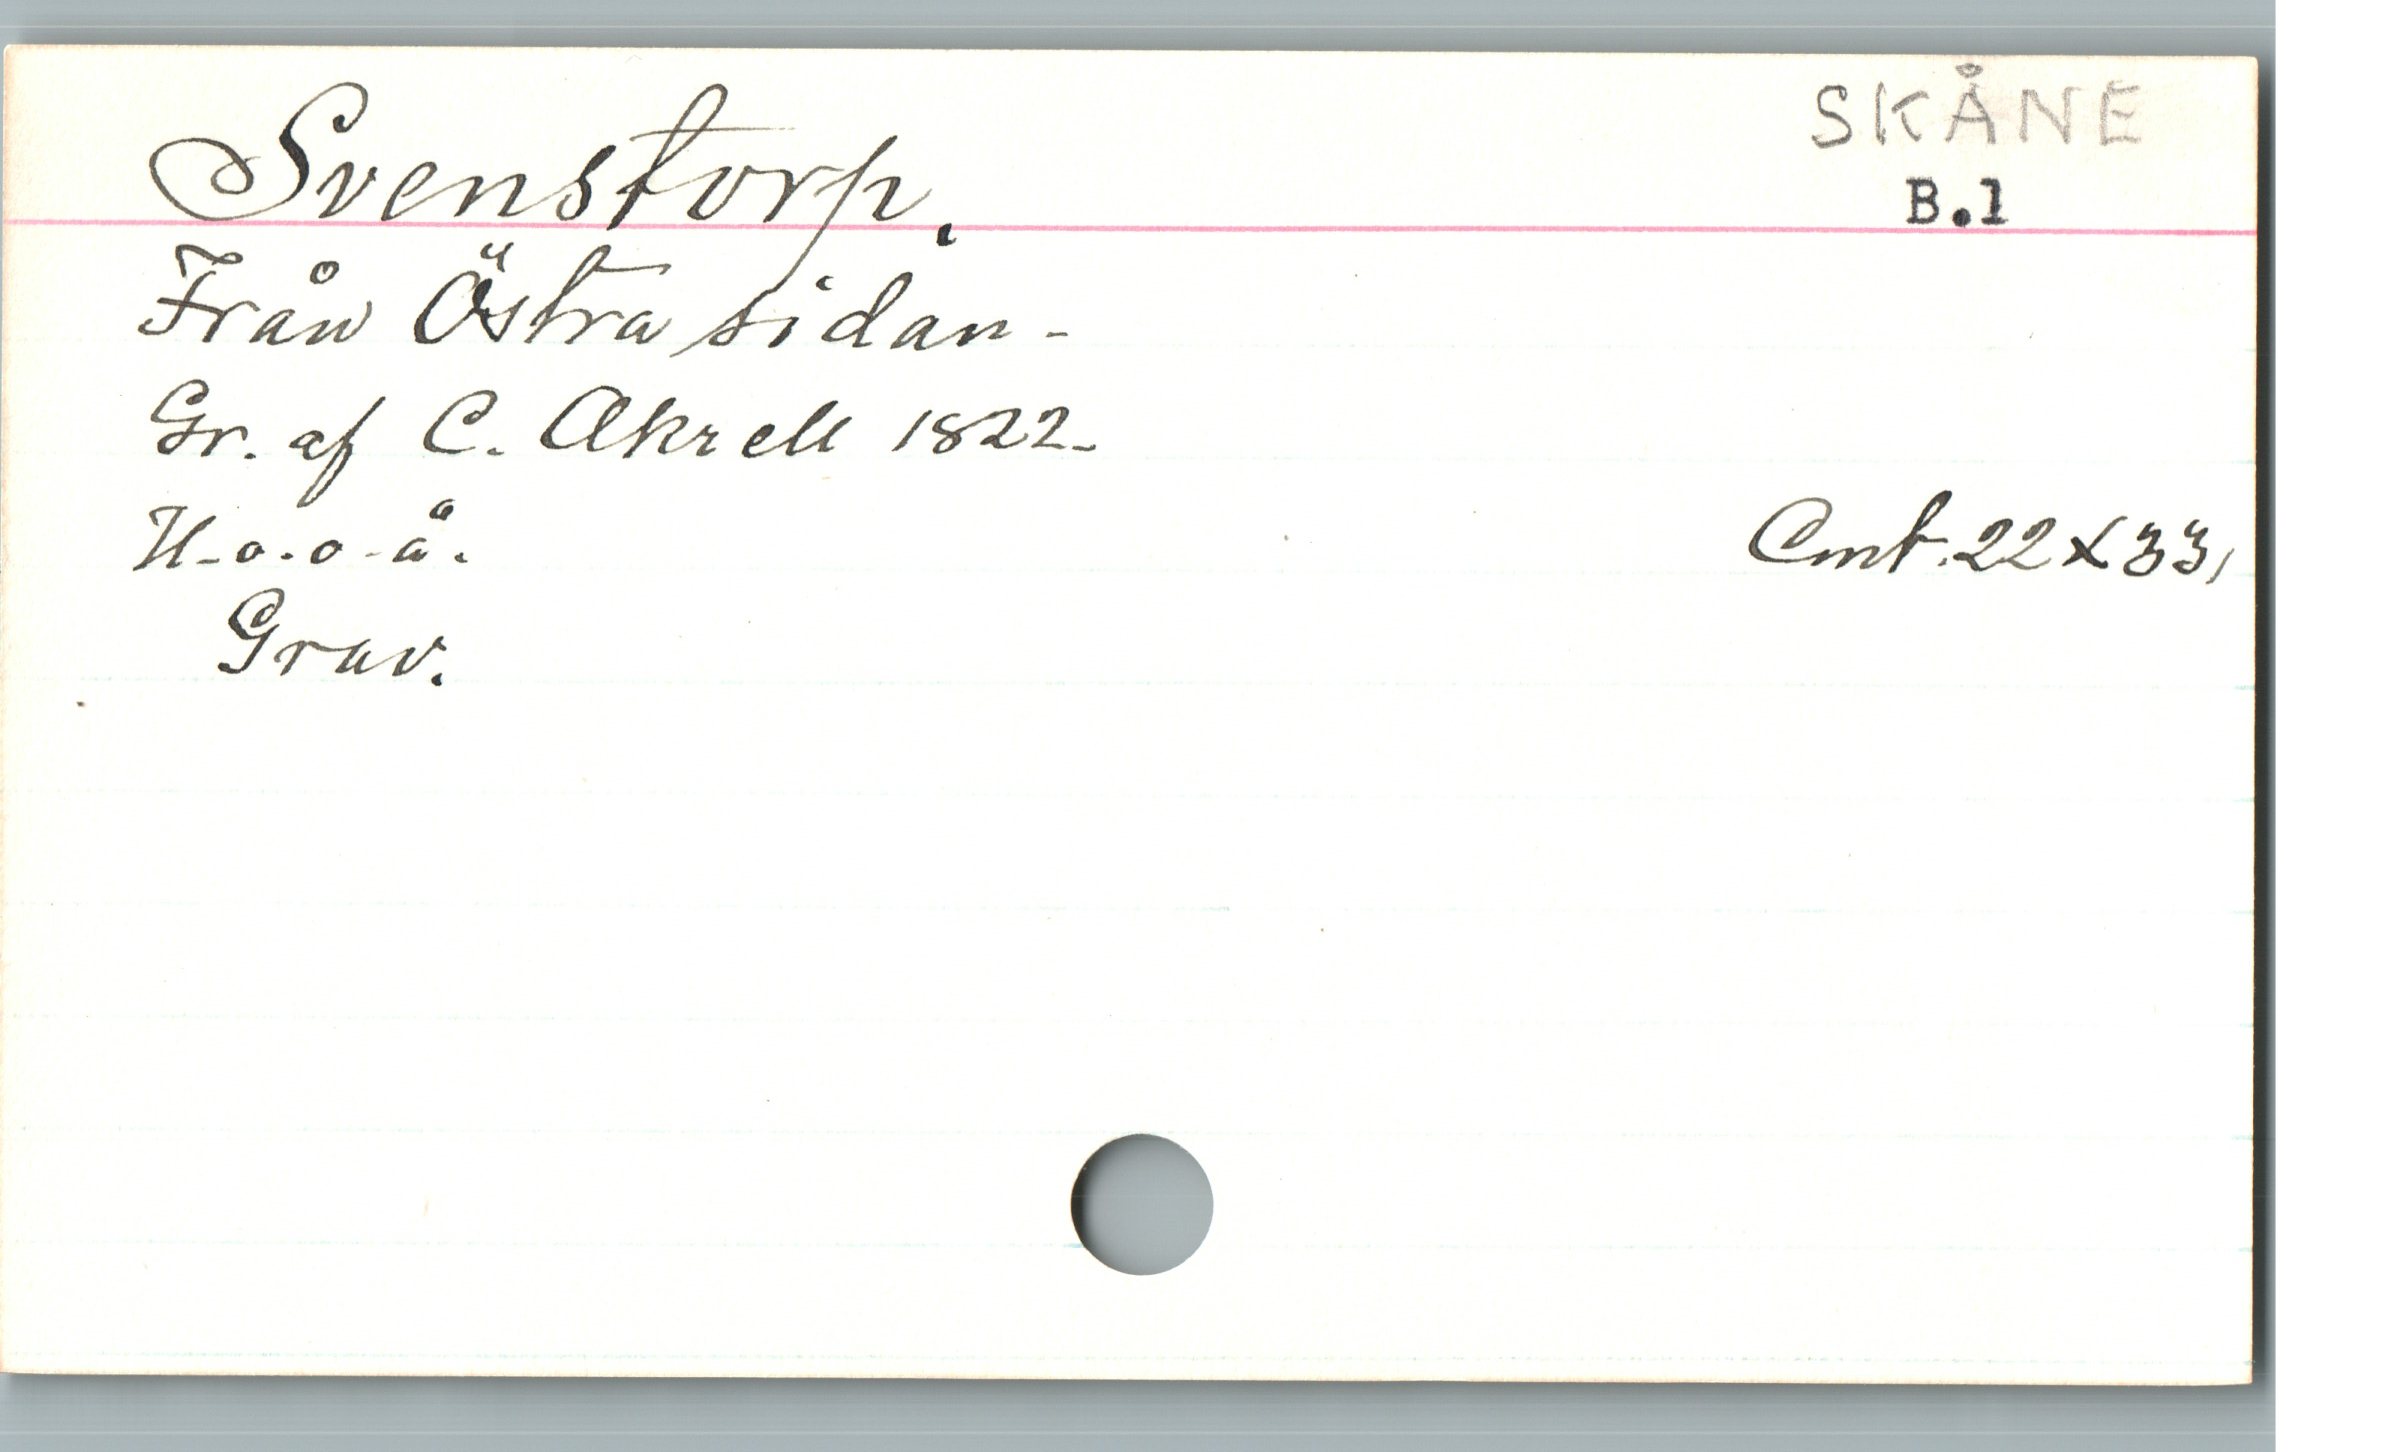 Svenstorp.
SKÅNE
B.1
Från Östra sidan-
Gr. af C. Akrell 1822-
U-o.o-å.
Cmt. 22 x 33,
Grav.